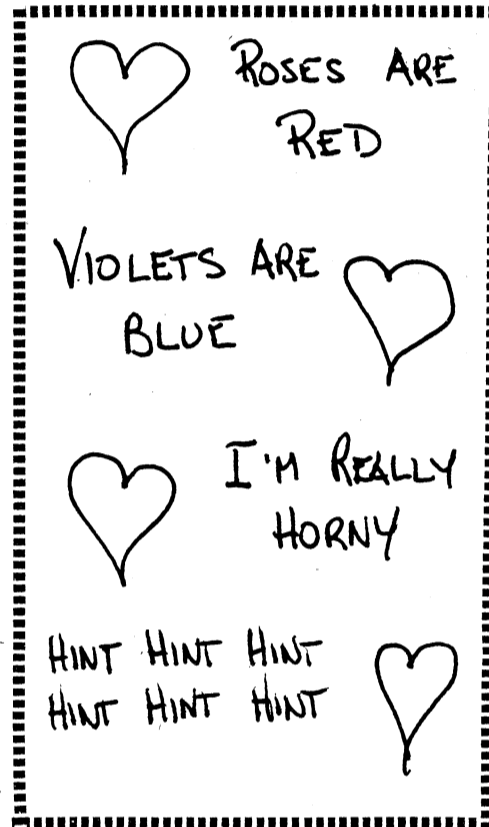 ROSES ARE
RED
VIOLETS ARE
BLUE
I'M REALLY
HORNY
HINT HINT HINT
HINT HINT HINT